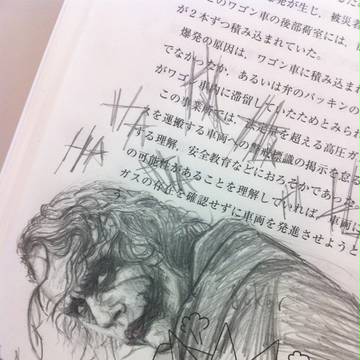 発が生じ，被災者
このワゴン車の後部荷室には，
が２本ずつ積み込まれていた。
爆発の原因は，ワゴン車に積み込まれ
でなかったか，あるいは弁のパッキンの
がワゴン車内に滞留していたためとみら
この事業所では，定量を超える高圧ガ
を運搬する車両への警戒標識の掲示を怠る
する理解，安全教育などにおろそかであった
の可能性があることを理解していれば，車両
ガスの存在を確認せずに車両を発進させようと
HA
HA
HA
HA